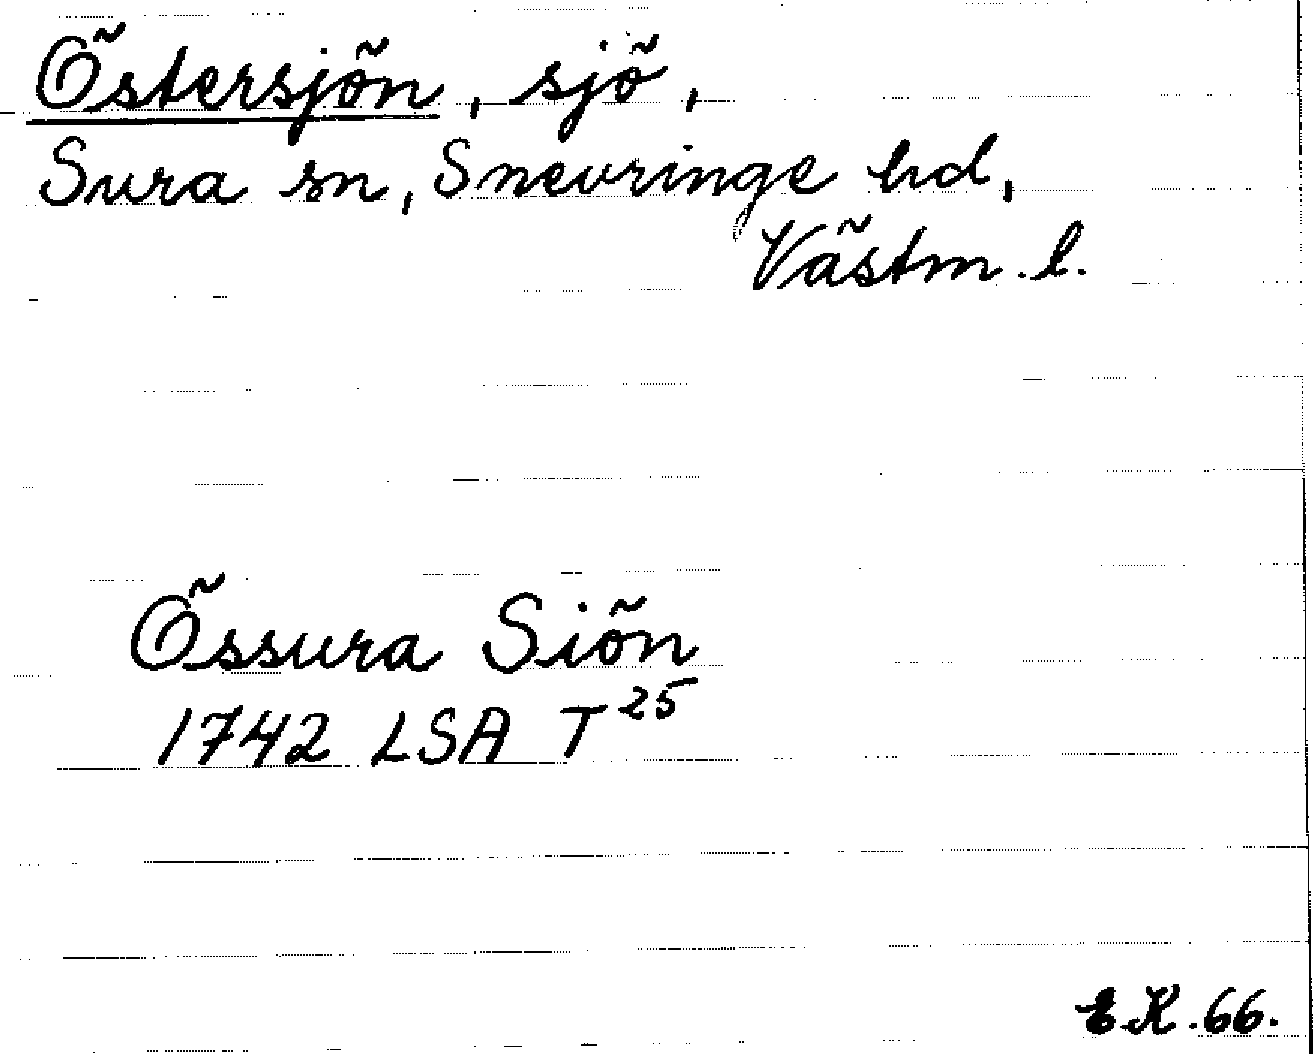 Östersjön, sjö,
Sura sn, Snevringe hd,
Västm. l.
Össura Siön
1742 LSA T 25
E.K. 66.